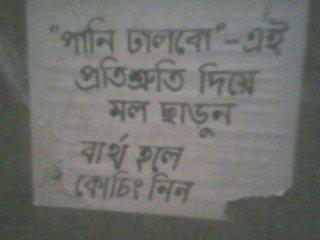 "পানি ঢালবো"-এই
প্রতিশ্রুতি দিয়ে
মল ছাড়ুন
ব্যর্থ হলে
কোচিং নিন